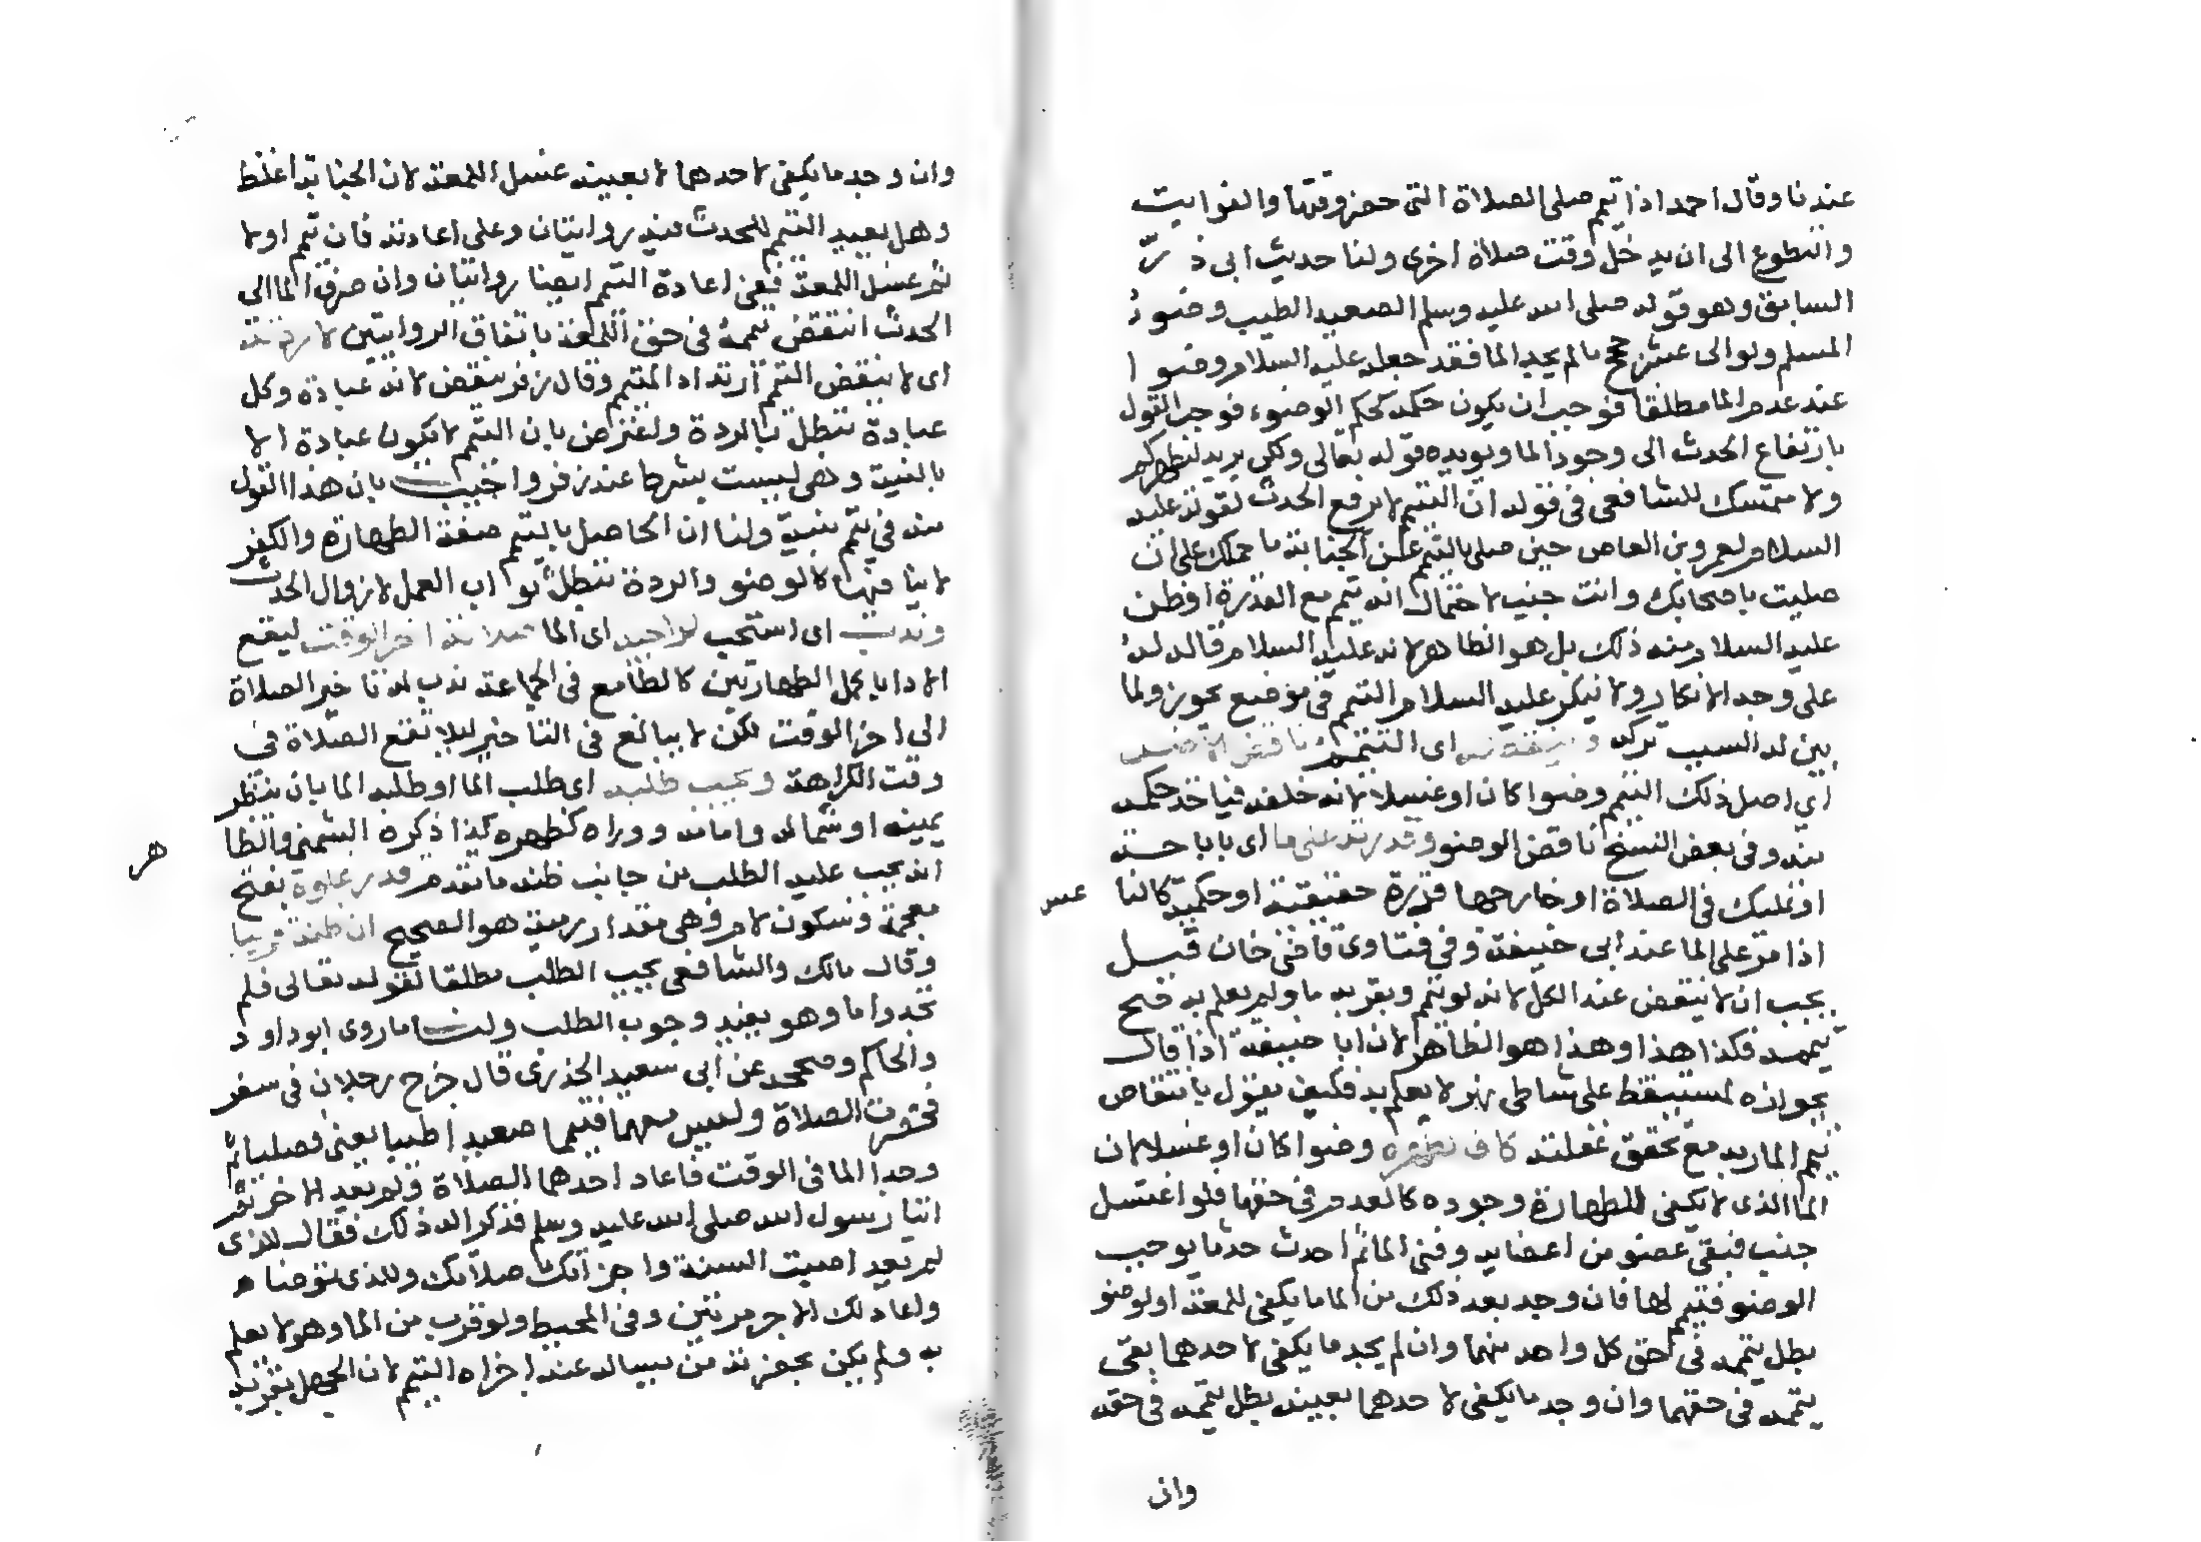 عندنا وقال احمد اذا تيمم صلى الصلاة التي حضر وقتها والفوايت
والتطوع الى ان يدخل وقت صلاة اخرى ولنا حديث ابي ذر
السابق وهو قوله صلى الله عليه وسلم الصعيد الطيب وضوء
المسلم ولو الى عشر حجج ما لم يجد الما فقد جعله عليه السلام وضوا
عند عدم الما مطلقا فوجب ان يكون حكمه كحكم الوضوء فوجب القول
بارتفاع الحدث الى وجود الما ويويده قوله تعالى ولكن يريد ليطهركم
ولا متمسك للشافعي في قوله ان التيمم لا يرفع الحدث لقوله عليه
السلام لعمرو بن العاص حين صلى بالتيمم عن الجنابة ما حملك على ان
صليت باصحابك وانت جنب لاحتمال انه تيمم مع القدرة او ظن
عليه السلام منه ذلك بل هو الظاهر لانه عليه السلام قال له
على وجه الانكار ولا ينكر عليه السلام التيمم في موضع يجوز ولما
بين له السبب تركه وينقضه اى التيمم ناقض الاصل
اي اصل ذلك التيمم وضوا كان او غسلا لانه خلفه فياخذ حكمه
منه وفي بعض النسخ ناقض الوضو وقدرته على ما اى باباحته
او تمليك في الصلاة او خارجها قدرة حقيقية او حكمية كالنا
عس
اذا مر على الما عند ابي حنيفة وفي فتاوى قاضي خان قيل
يجب ان لا ينتقض عند الكل لانه لو تيمم وبقربه ما ولم يعلم به صح
تيممه فكذا هذا وهذا هو الظاهر لان ابا حنيفة اذا قال
بجوازه لمستيقظ على شاطى نهر لا يعلم به فكيف يقول بانتقاض
تيمم المار به مع تحقق غفلته كاف لطهره وضوا كان او غسلا لان
الما الذى لا يكفي للطهارة وجوده كالعدم في حقها فلو اغتسل
جنب فبقي عضو من اعضايه وفني الما ثم احدث حدثا يوجب
الوضو فتيمم لها فان وجد بعد ذلك من الما ما يكفي للمعة او لوضو
بطل تيممه في حق كل واحد منهما وان لم يجد ما يكفي لاحدهما بقي
تيممه في حقهما وان وجد ما يكفي لاحدهما بعينه بطل تيممه في حقه
وان
وان وجد ما يكفي لاحدهما لا بعينه غسل اللمعة لان الجنابة اغلظ
وهل يعيد التيمم للحدث فيه روايتان وعلى اعادته فان تيمم اولا
ثم غسل اللمعة ففي اعادة التيمم ايضا روايتان وان صرف الما الى
الحدث انتقض تيممه في حق اللمعة باتفاق الروايتين لا ردته
اى لا ينقض التيمم ارتداد المتيمم وقال زفر ينقض لانه عبادة وكل
عبادة تبطل بالردة واعترض بان التيمم لا يكون عبادة الا
بالنية وهي ليست بشرط عند زفر واجيب بان هذا القول
منه في تيمم بنية ولنا ان الحاصل بالتيمم صفة الطهارة والكفر
لا ينافيها كالوضو والردة تبطل ثواب العمل لا زوال الحدث
وندب اى استحب لراجيه اى الما صلاته اخر الوقت ليقع
الادا باكمل الطهارتين كالطامع في الجماعة ندب له تاخير الصلاة
الى اخر الوقت لكن لا يبالغ في التاخير ليلا تقع الصلاة في
وقت الكراهة ويجب طلبه اى طلب الما او طلبه الما بان ينظر
يمينه او شماله وامامه ووراه كظهره كذا ذكره الشمني والظا
هر
انه يجب عليه الطلب من جانب ظنه ما تقدم قدر غلوة بفتح
معجمة فسكون لام وهي مقدار رمية هو الصحيح ان ظنه قريبا
وقال مالك والشافعي يجب الطلب مطلقا لقوله تعالى فلم
تجدوا ما وهو يفيد وجوب الطلب ولنا ما روى ابو داود
والحاكم وصححه عن ابي سعيد الخدرى قال خرج رجلان في سفر
فحضرت الصلاة وليس معهما فتيمما صعيدا طيبا يعني فصليا ثم
وجدا الما في الوقت فاعاد احدهما الصلاة ولم يعد الاخر ثم
اتيا رسول الله صلى الله عليه وسلم فذكرا له ذلك فقال للذى
لم يعد اصبت السنة واجزاتك صلاتك وللذى توضا
واعاد لك الاجر مرتين وفي المحيط ولو قرب من الما وهو لا يعلم
به ولم يكن بحضرته من يساله عنه اجزاه التيمم لان الجهل بقربه